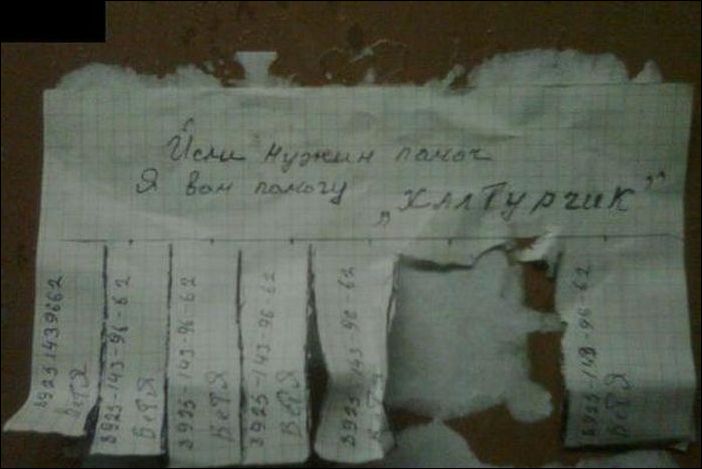 Исли нужин памоч
Я вам памогу „ХАЛТУРЧИК”
89251439662
ВеТЯ
8925-143-96-62
ВеТЯ
8925-143-96-62
ВеТЯ
8925-143-96-62
ВеТЯ
8925-143-96-62
8925-143-96-62
ВеТЯ